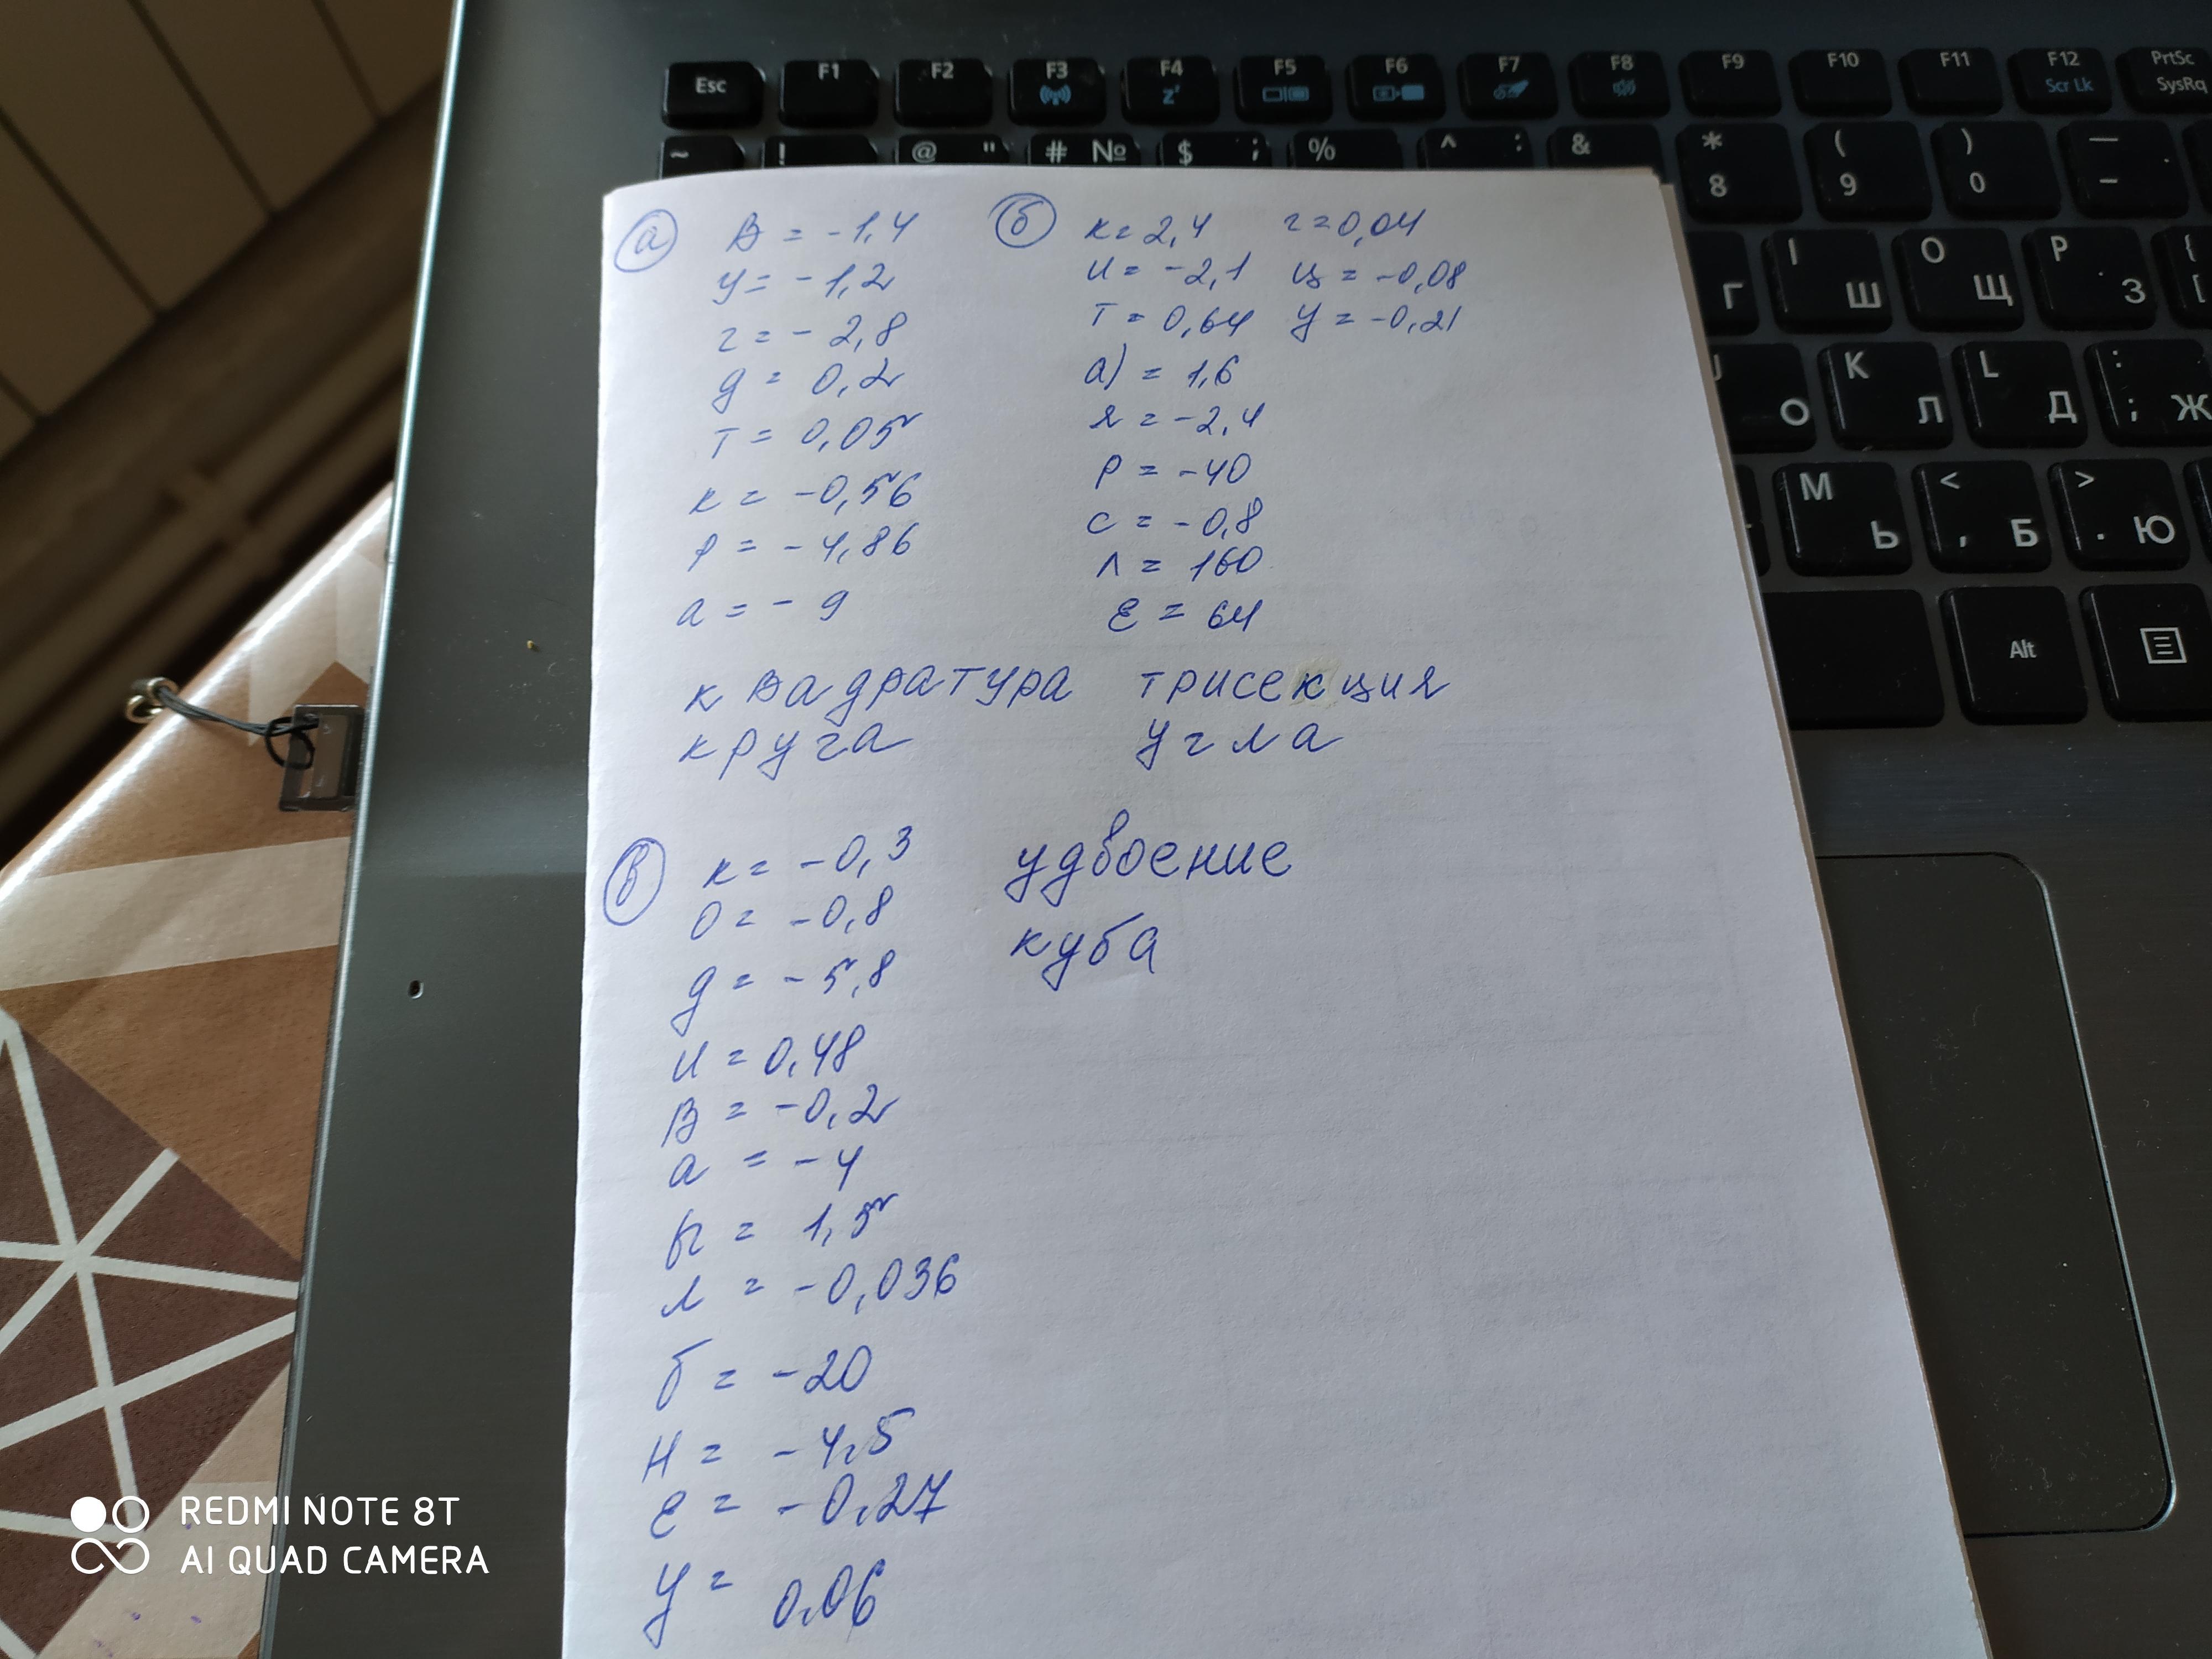 Esc F1 F2 F3 F4 z' F5 F6 F7 F8 F9 F10 F11 F12 Scr Lk PrtSc SysRq
~ ! @ " # № $ ; % ^ : & * 8 ( 9 ) 0 — -
Г I Ш O Щ P З { [
О K Л L Д : ; Ж
M Ь < , Б > . Ю
Alt
а
В = -1,4
у = -1,2
г = - 2,8
д = 0,2
т = 0,05
к = -0,56
р = -4,86
а = - 9
б
к = 2,4 г = 0,04
и = -2,1 ц = -0,08
т = 0,64 у = -0,21
а) = 1,6
я = -2,4
р = -40
с = -0,8
л = 160
е = 64
квадратура трисекция
круга угла
в
к = -0,3
о = -0,8
д = -5,8
и = 0,48
в = -0,2
а = -4
ы = 1,5
л = -0,036
б = -20
н = -4,5
е = -0,27
у = 0,06
удвоение
куба
REDMI NOTE 8T
AI QUAD CAMERA